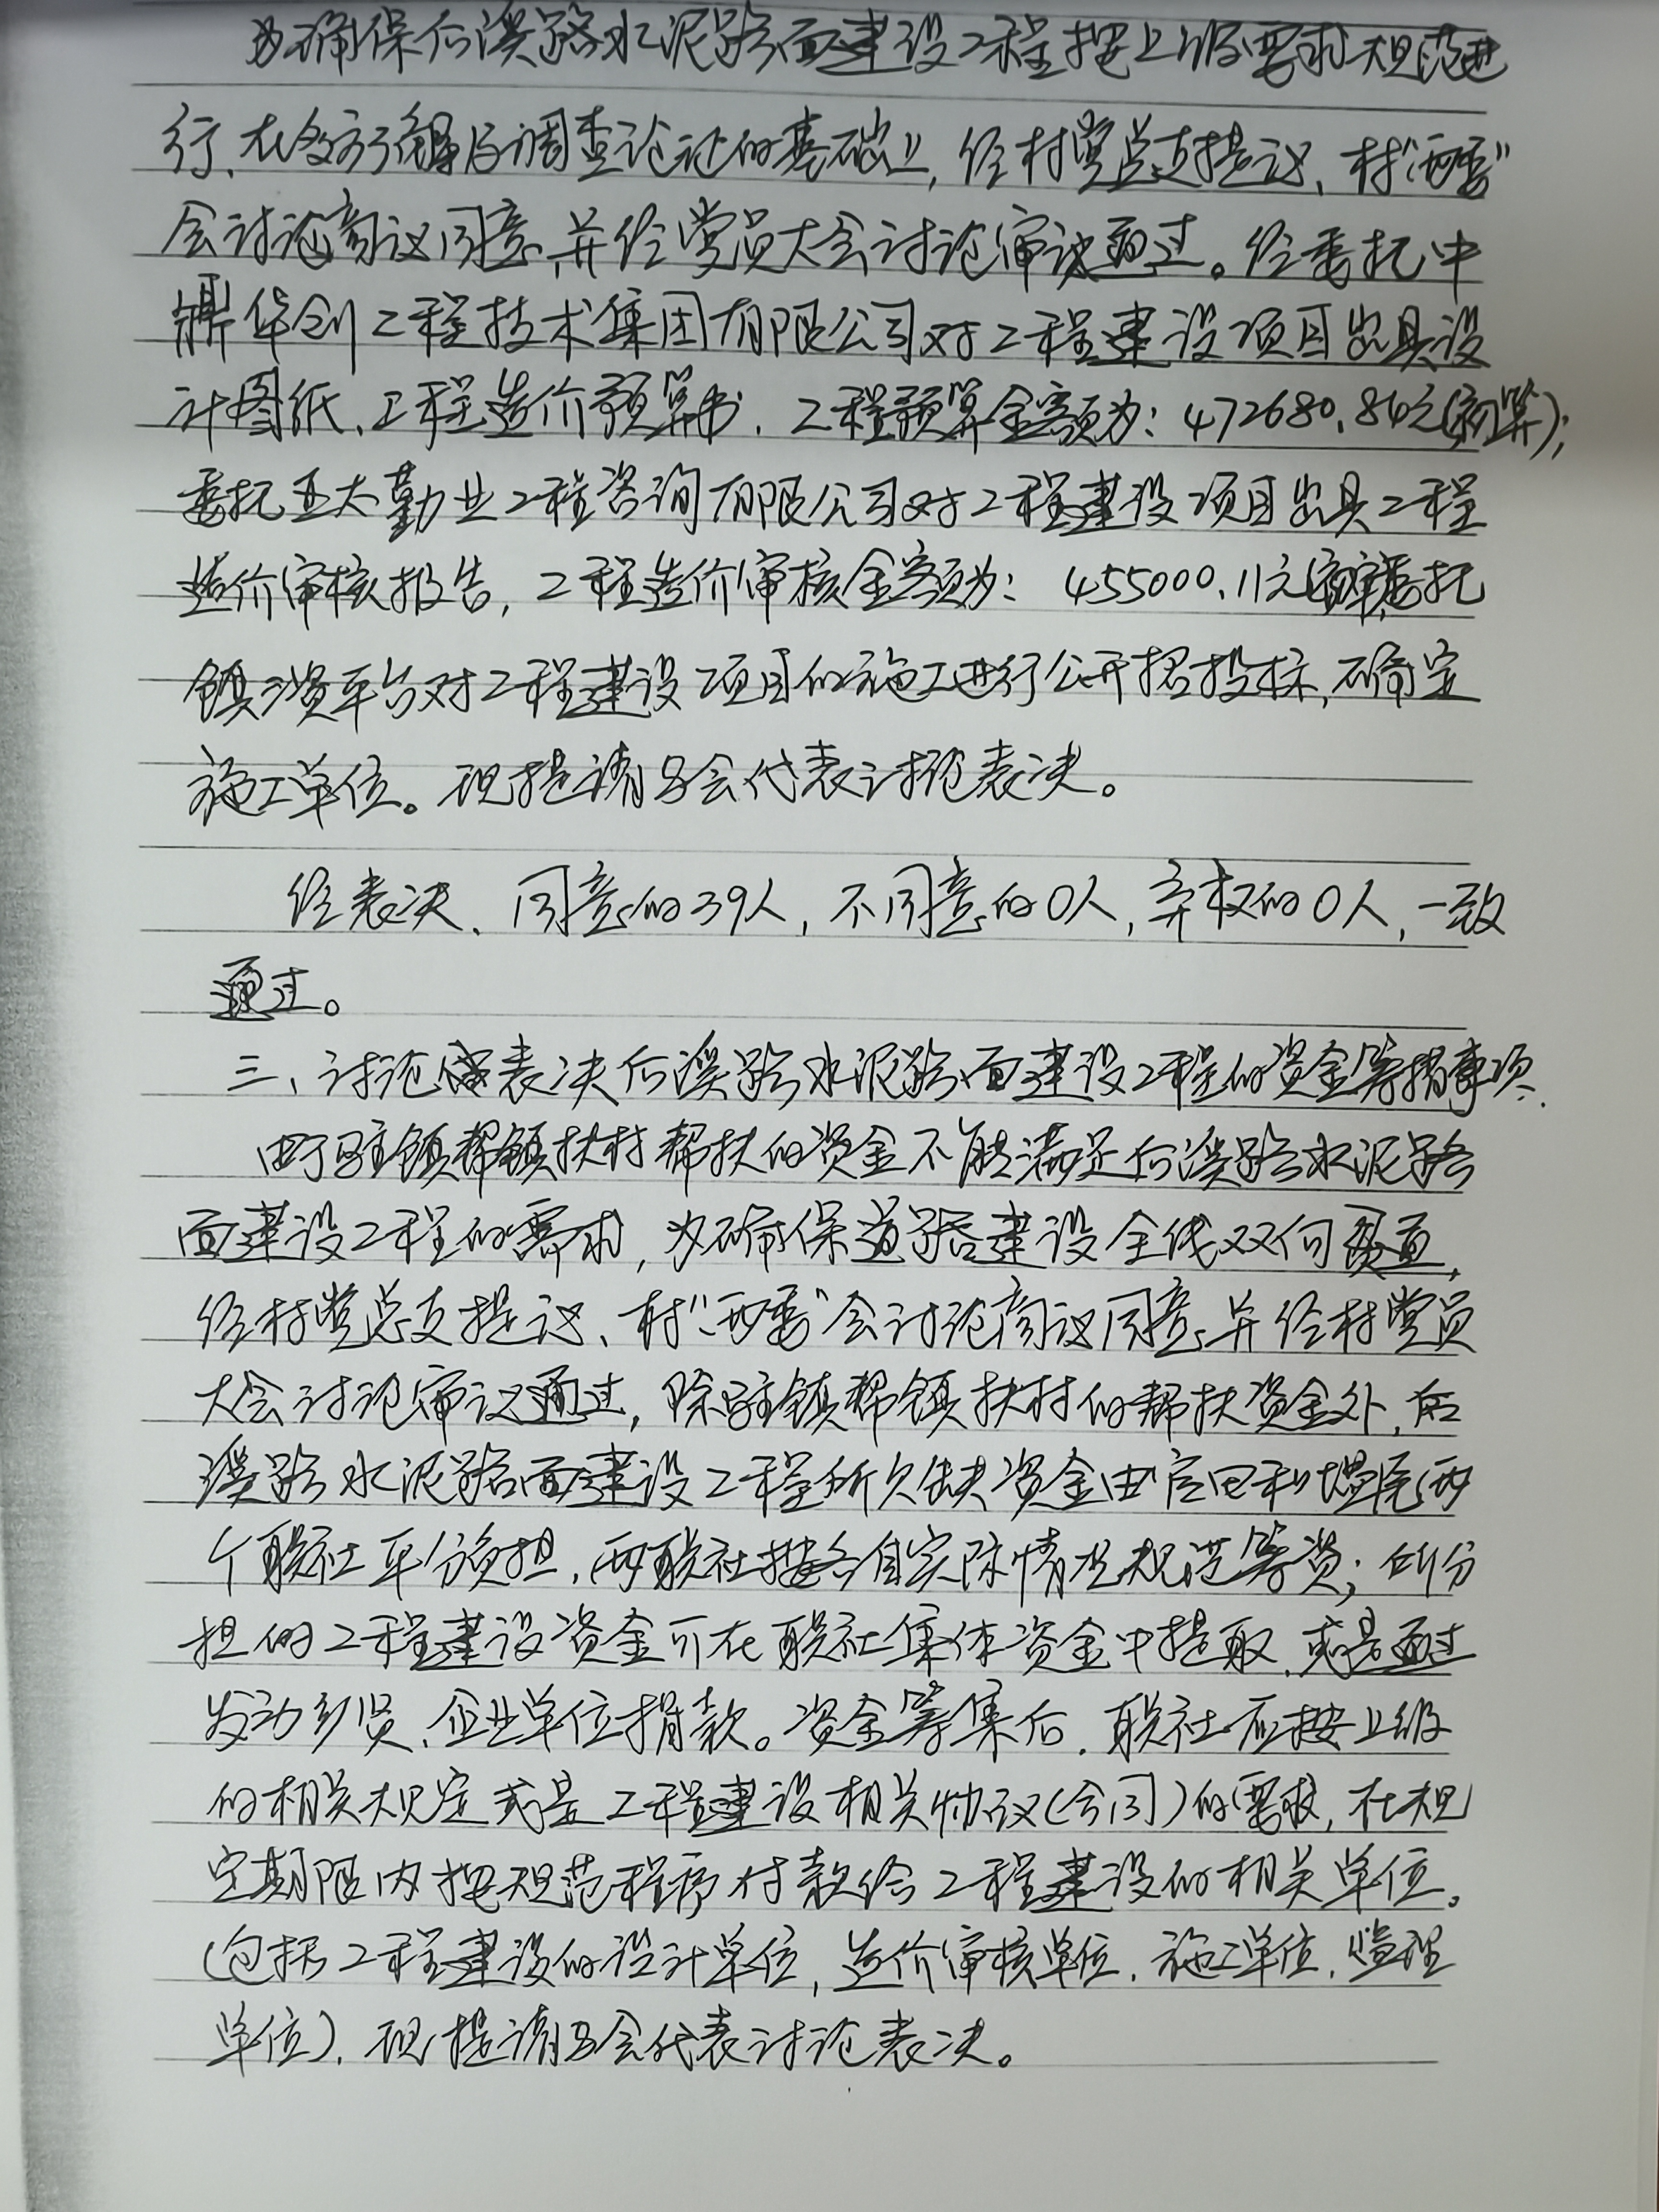 为确保后溪路水泥路面建设工程按上级要求规范进
行、在多方了解及调查论证的基础上, 经村党总支提议、村"两委"
会讨论商议同意, 并经党员大会讨论审议通过。经委托中
鼎华创工程技术集团有限公司对工程建设项目出具设
计图纸、工程造价预算书, 工程预算金额为: 472680.84元(初算);
委托亚太勤业工程咨询有限公司对工程建设项目出具工程
造价审核报告, 工程造价审核金额为: 455000.11元 委托
镇三资平台对工程建设项目的施工进行公开招投标, 确定
施工单位。现提请与会代表讨论表决。
经表决、同意的39人, 不同意的0人, 弃权的0人, 一致
通过。
三、讨论 表决后溪路水泥路面建设工程的资金筹措事项.
由于驻镇帮镇扶村帮扶的资金不能满足后溪路水泥路
面建设工程的需求, 为确保道路建设全线双向贯通,
经村党总支提议、村"两委"会讨论商议同意, 并经村党员
大会讨论审议通过, 除驻镇帮镇扶村的帮扶资金外, 后
溪路水泥路面建设工程所欠缺资金由 和 两
个联社平分负担, 两联社按各自实际情况规范筹资; 所分
担的工程建设资金可在联社集体资金中提取, 或是通过
发动乡贤、企业单位捐款。资金筹集后, 联社应按上级
的相关规定或是工程建设相关协议(合同)的要求, 在规
定期限内按规范程序付款给工程建设的相关单位。
(包括工程建设的设计单位, 造价审核单位, 施工单位, 监理
单位), 现提请与会代表讨论表决。